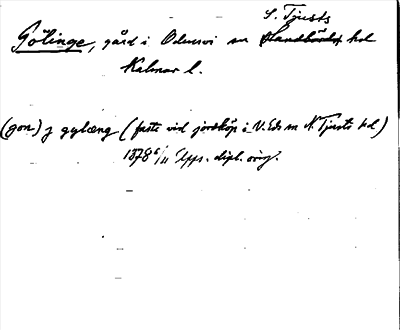 S. Tjusts
Gölinge, gård i Odensvi sn Handbörds hd
Kalmar l.
(gon) j gylæng (faste vid jordköp i V. Eds sn N Tjusts hd)
1378 6/11 Upps. dipl. orig.